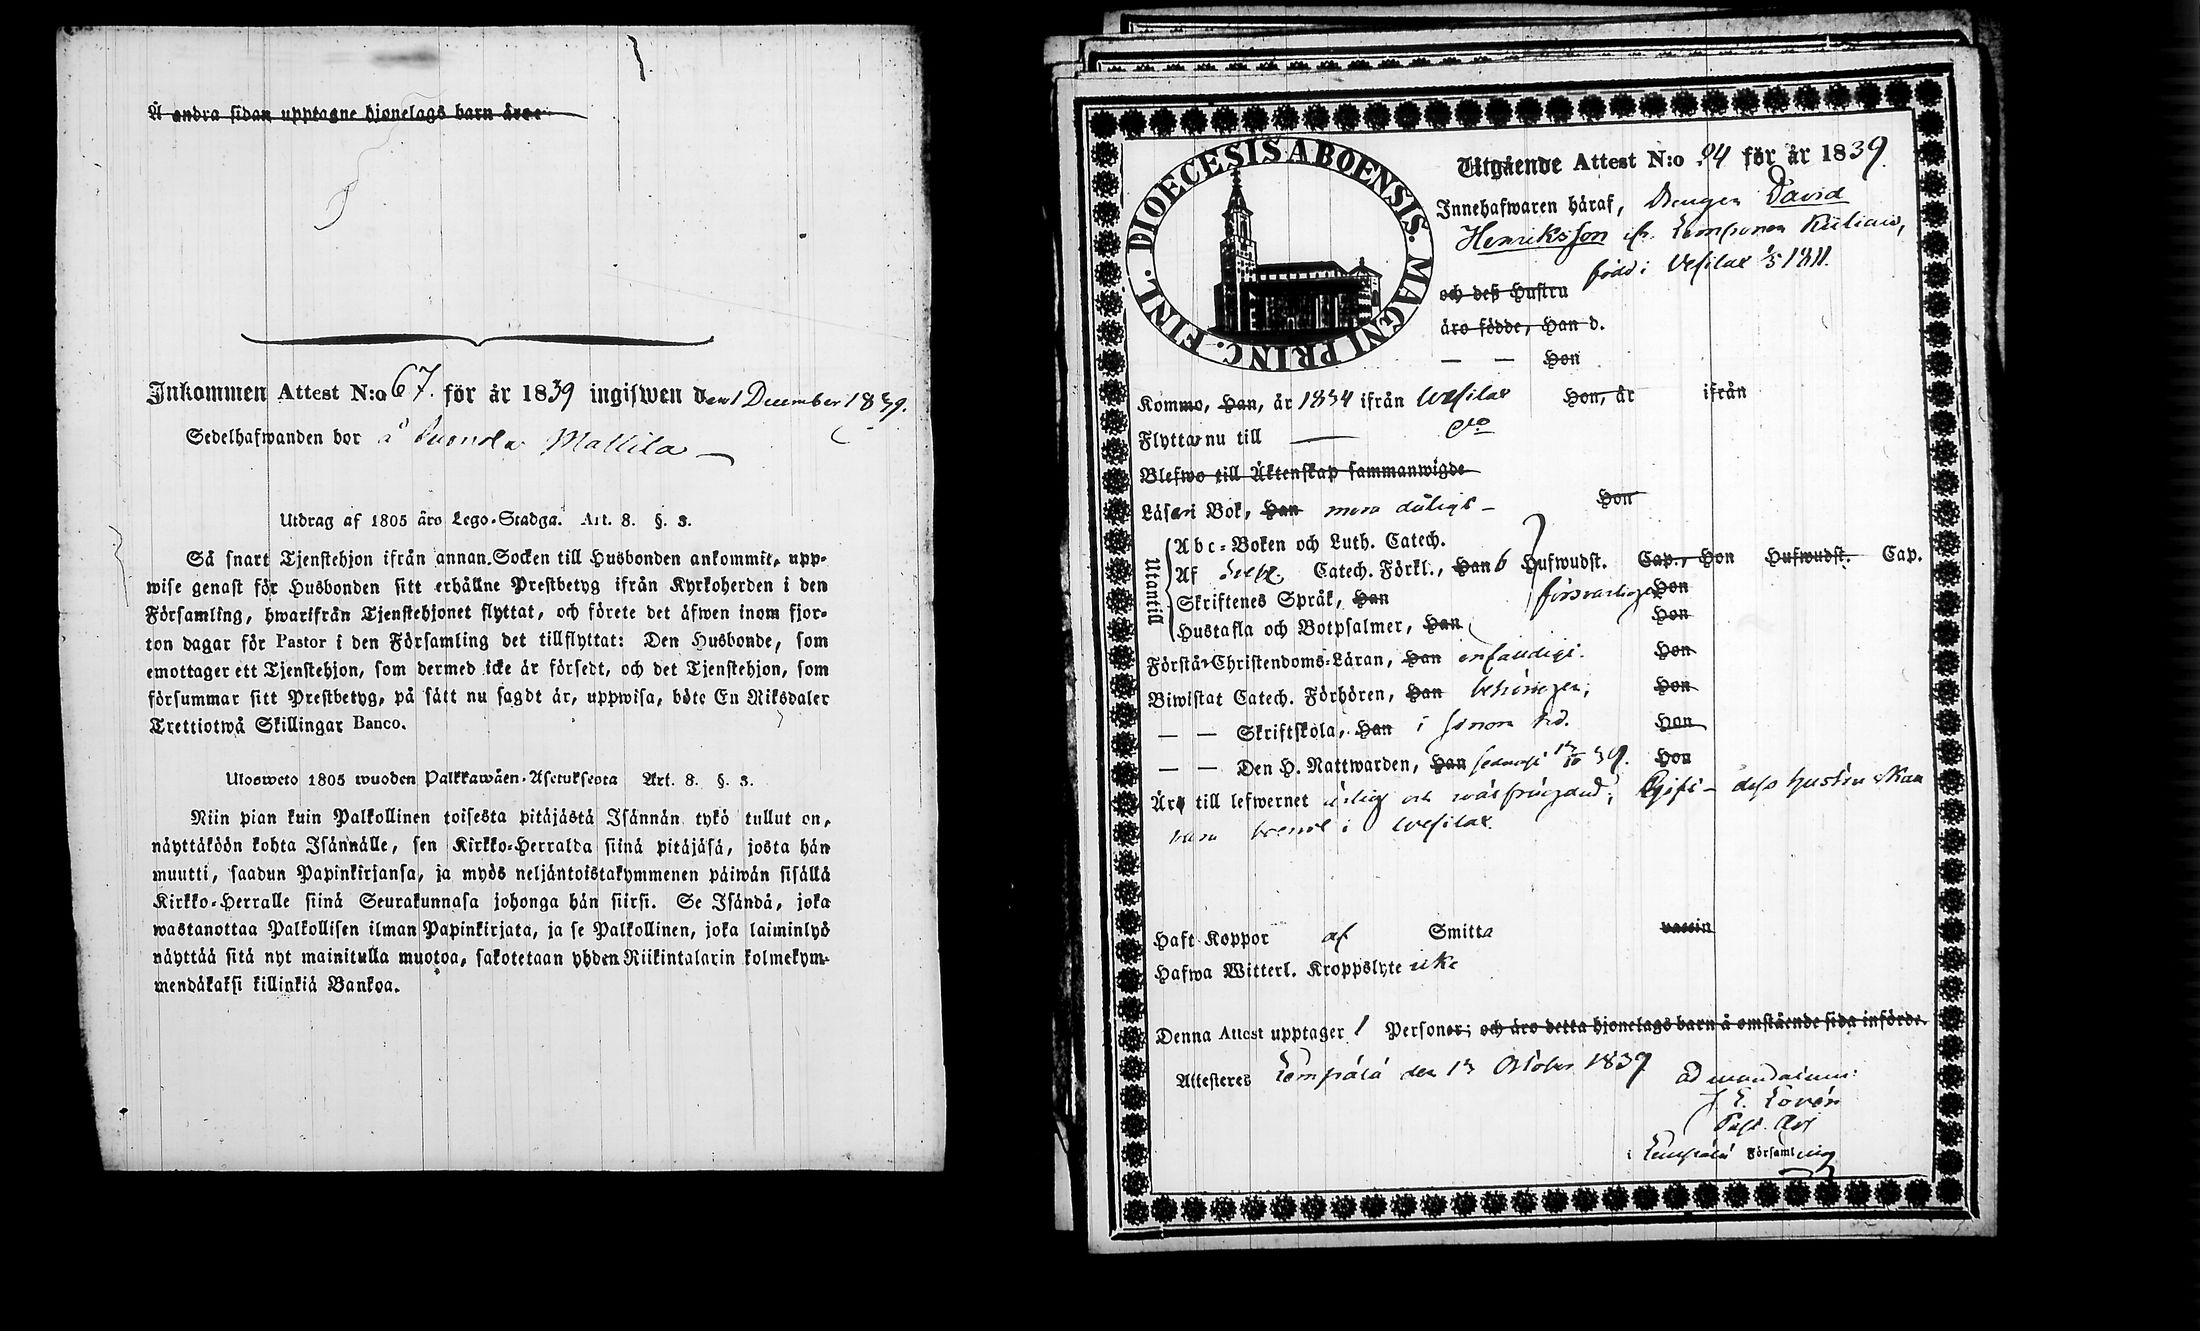 Å andra sidan upptagne hjonelags barn äro:
Inkommen Attest N:o 67. för år 1839 ingifwen den 1 December 1839.
Sedelhafwanden bor å Mattila
Utdrag af 1805 års Lego-Stadga. Art. 8. §. 3.
Så snart Tjenstehjon ifrån annan Socken till Husbonden ankommit, upp-
wise genast för Husbonden sitt erhållne Prestbetyg ifrån Kyrkoherden i den
Församling, hwarifrån Tjenstehjonet flyttat, och förete det äfwen inom fjor-
ton dagar för Pastor i den Församling det tillflyttat: Den Husbonde, som
emottager ett Tjenstehjon, som dermed icke är försedt, och det Tjenstehjon, som
försummar sitt Prestbetyg, på sätt nu sagdt är, uppwisa, böte En Riksdaler
Trettiotwå Skillingar Banco.
Ulosweto 1805 wuoden Palkkawäen-Asetuksesta Art. 8. §. 3.
Niin pian kuin Palkollinen toisesta pitäjästä Isännän tykö tullut on,
näyttäköön kohta Isännälle, sen Kirkko-Herralda siinä pitäjäsä, josta hän
muutti, saadun Papinkirjansa, ja myös neljäntoistakymmenen päiwän sisällä
Kirkko-Herralle siinä Seurakunnasa johonga hän siirsi. Se Isändä, joka
wastanottaa Palkollisen ilman Papinkirjata, ja se Palkollinen, joka laiminlyö
näyttää sitä nyt mainitulla muotoa, sakotetaan yhden Riikintalarin kolmekym-
mendäkaksi killinkiä Bankoa.
DIOECESIS ABOENSIS. MAGNI PRINC. FINL.
Utgående Attest N:o 94 för år 1839.
Innehafwaren häraf, Drengen David
Henriksson ifr. Lemponen
född i Vesilax 1/5 1811.
och deß Hustru
äro födde, Han d.
— — Hon
Kommo, Han, år 1834 ifrån Wesilax Hon, år ifrån
Flyttar nu till — dto
Blefwo till Äktenskap sammanwigde
Läser i Bok, Han mera dåligt – Hon
Utantill
Abc-Boken och Luth. Catech.
Af Svep. Catech. Förkl., Han 6 Hufwudst. Cap., Hon Hufwudst. Cap.
Skriftenes Språk, Han försvarligen Hon
Hustafla och Botpsalmer, Han Hon
Förstår Christendoms-Läran, Han enfaldigt. Hon
Biwistat Catech. Förhören, Han behörigen; Hon
— — Skriftskola, Han i sinom tid. Hon
— — Den H. Nattwarden, Han sednast 13/10 39. Hon
Är till lefwernet ärlig och wälfrägdad; Gift – dess hustru skall
vara boende i Wesilax.
Haft Koppor af Smitta vaccin
Hafwa Witterl. Kroppslyte icke
Denna Attest upptager 1 Personer; och äro detta hjonelags barn å omstående sida införde.
Attesteres Lempälä den 13 October 1839
ad mandatum:
J E. Lovén
Past. Adj
i Lempälä Församling